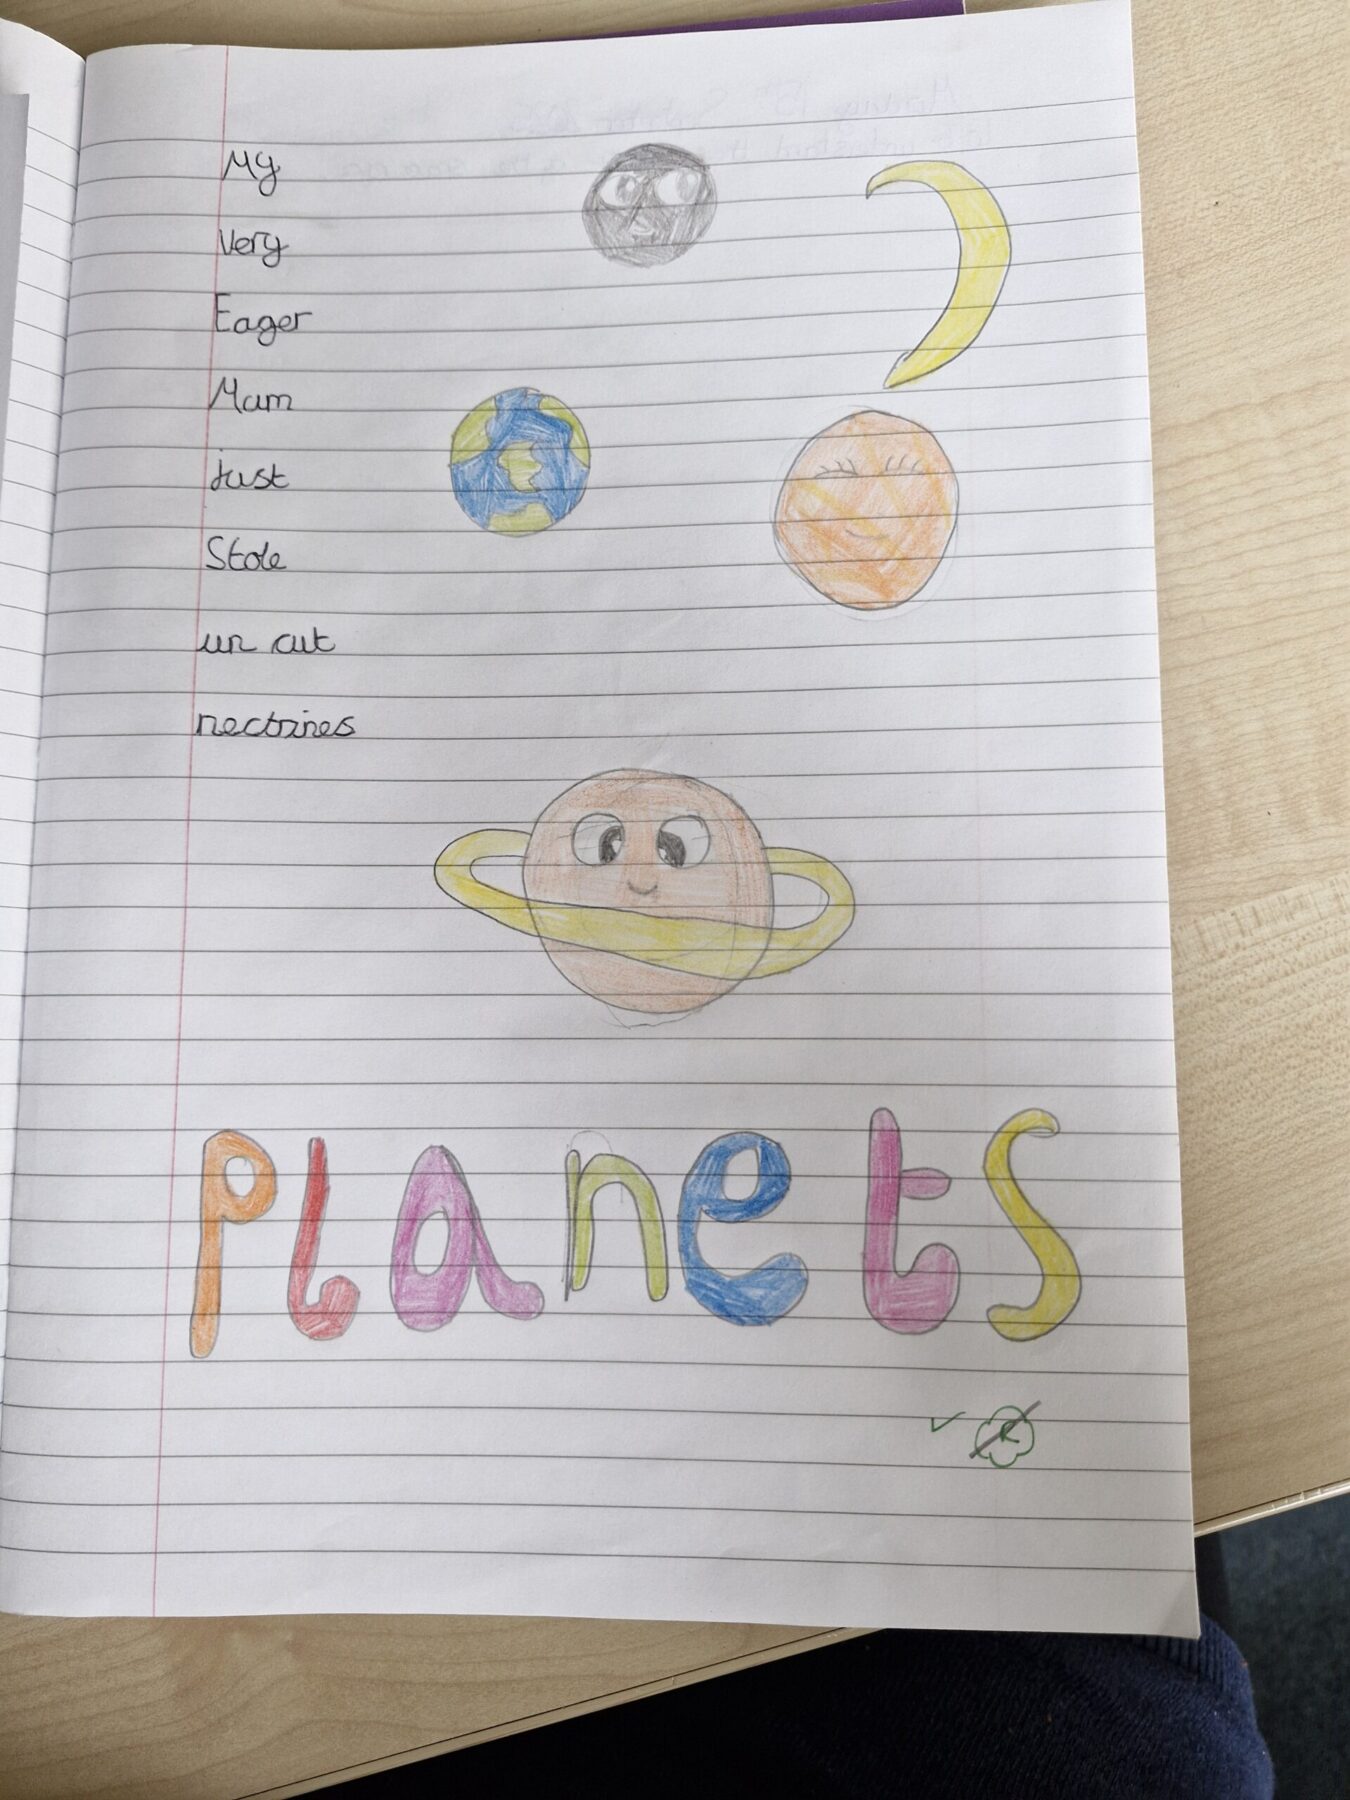 My
Very
Eager
Mam
just
Stole
un cut
nectrines
Planets